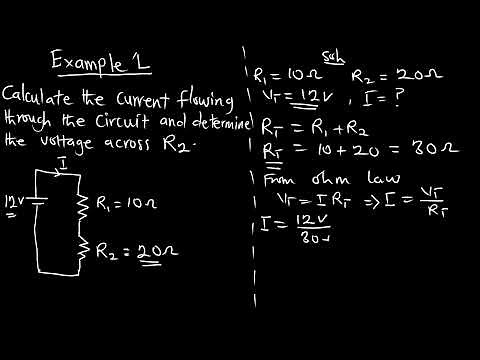 Example 1
Calculate the current flowing
through the circuit and determine
the voltage across R₂.
I
12V
R₁ = 10Ω
R₂ = 20Ω
Soln
R₁ = 10Ω R₂ = 20Ω
V_T = 12V , I = ?
R_T = R₁ + R₂
R_T = 10 + 20 = 30Ω
From ohm law
V_T = I R_T ⇒ I = V_T / R_T
I = 12V / 30